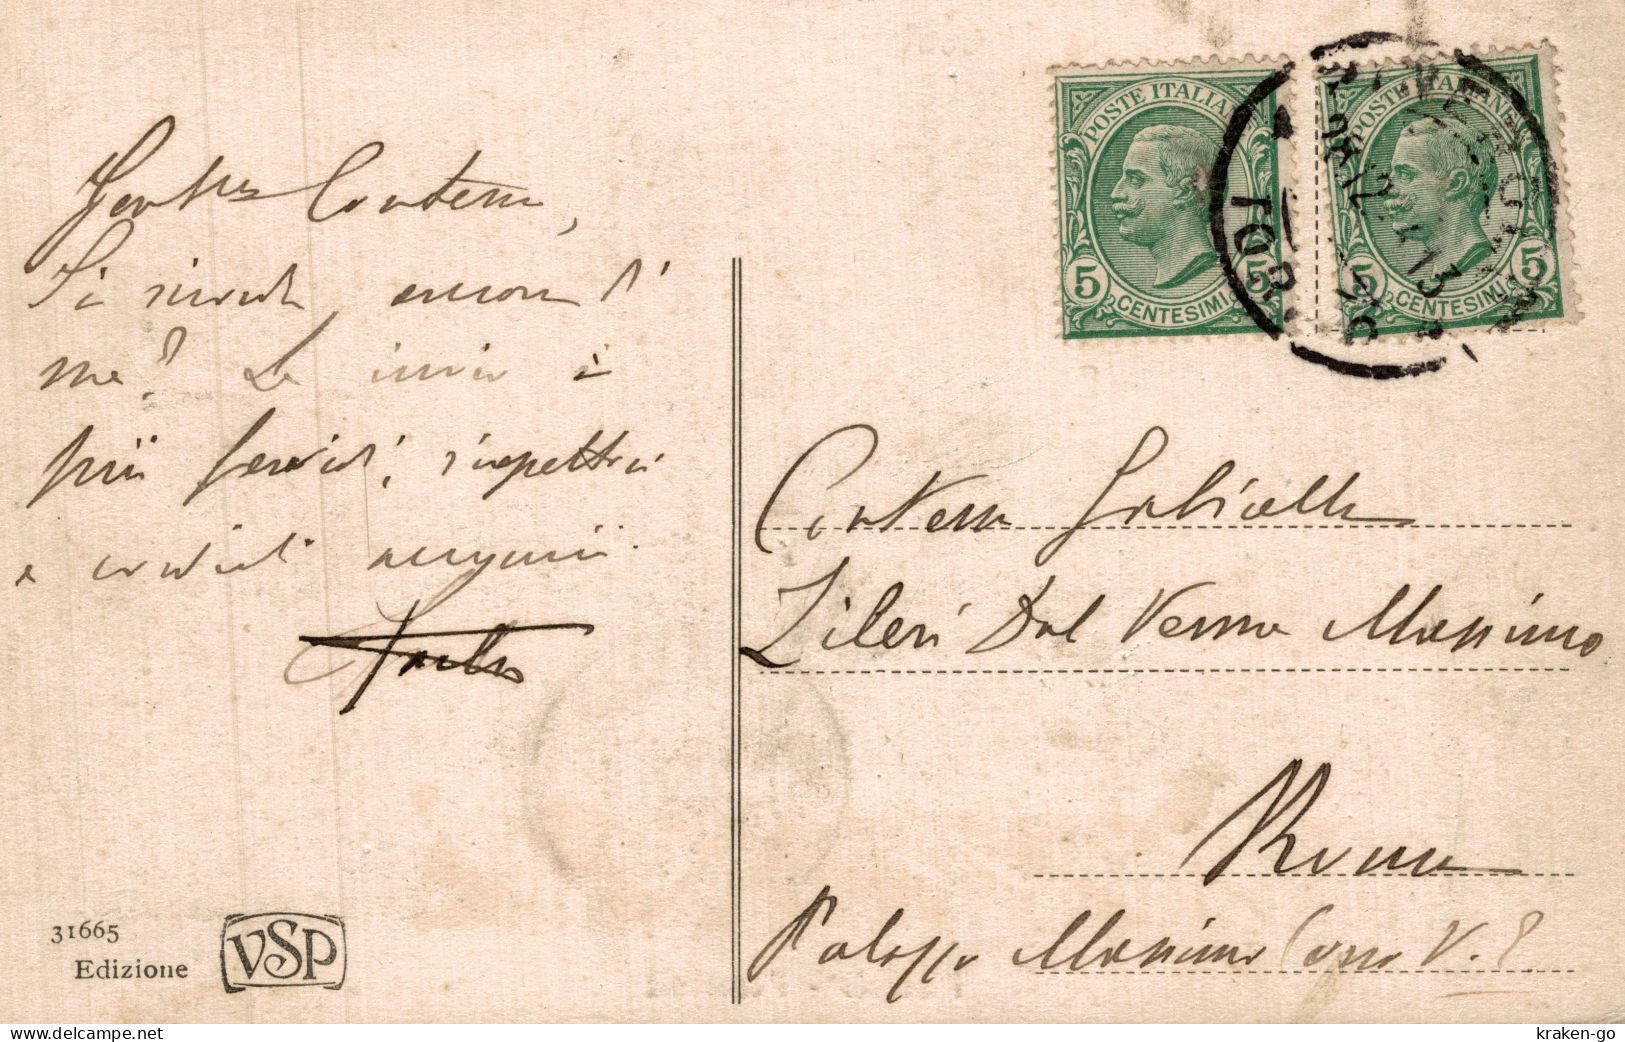 Gentma Contessa,
Si ricorda ancora di
me? Le invio i
più fervidi, rispettosi
e cordiali auguri.
31665
Edizione
VSP
POSTE ITALIANE
5 CENTESIMI 5
POSTE ITALIANE
5 CENTESIMI 5
28.12.13
Contessa Gabriella
Zileri Dal Verme Massimo
Roma
Palazzo Massimo Corso V. E.
kraken-go